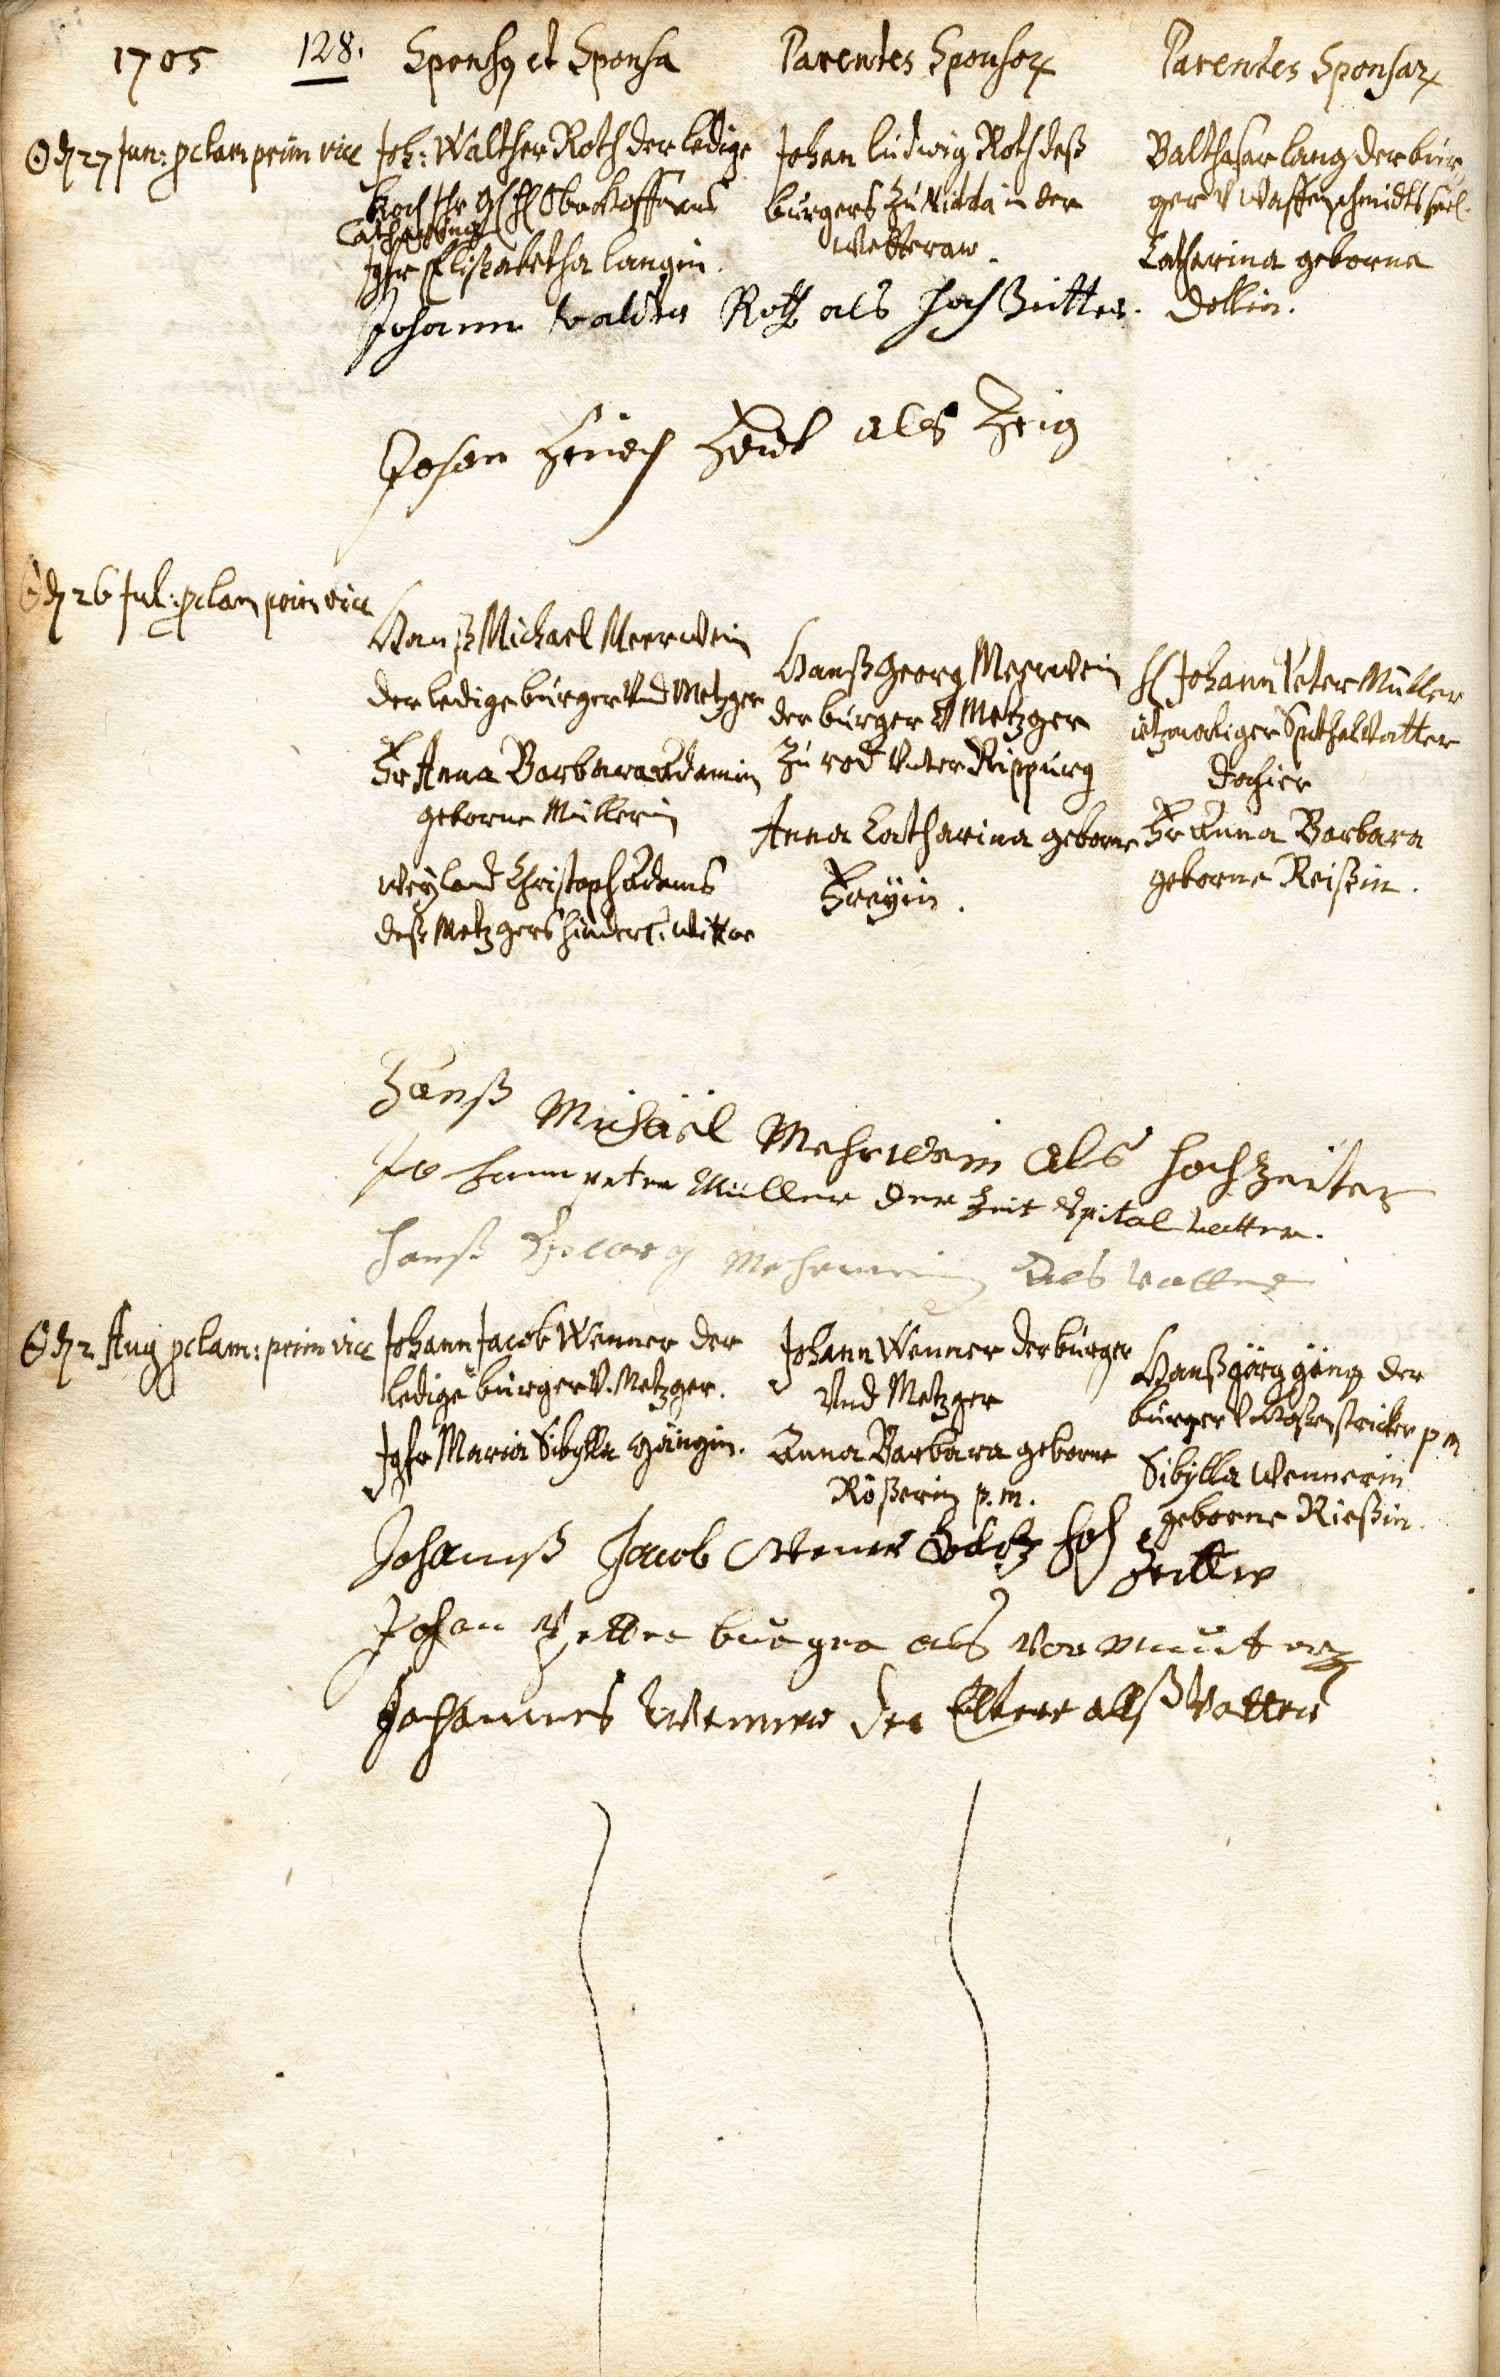 1705 128. Sponsꝰ et Sponsa Parentes Sponsoꝝ Parentes Sponsaꝝ
☉ d 27 Jun: pclam prim vice
Joh: Walther Roth der ledige
Koch
Catharina
Jgfr Elißabetha Langin.
Johan Ludwig Roth deß
burgers zu Nidda in der
Wetteraw.
Balthasar Lang der bur-
ger V Waffenschmidts seel.
Catharina geborne
Dollin.
Johann Walter Roth als Hochzeitter.
Johan als Zeig
☉ d 26 Jul: pclam prim vice
Hanß Michael Meerwein
der ledige burger Vnd Metzger
Fr Anna Barbara Adamin
geborne Müllerin
weyland Christoph Adams
deß Metzgers hinderl. wittwe
Hanß Georg Meerwein
der burger V Metzger
zu rod Vnter Rippurg
Anna Catharina geborne
Freyin.
H Johann Peter Müller
itzmaliger Spithalvatter
dahier
Fr Anna Barbara
geborne Reißin.
Hanß Michäel Mehrwein als Hochzeiter
Johann peter Müller der Zeit Spital vatter.
Hanß Georg Mehrwein als Vatter
☉ d 2 Aug pclam: prim vice
Johann Jacob Wenner der
ledige burger V. Metzger.
Jgfr Maria Sibylla Gängin.
Johann Wenner der burger
Vnd Metzger
Anna Barbara geborne
Rößerin p.m.
Hanß görg gäng der
burger V Hoßenstricker p m
Sibylla Wennerin
geborne Rießin.
Johannß Jacob Wener Hoch Zeitter
Johan Petter burger als Vormunter
Johannes Wenner der Eltere allß Vatter